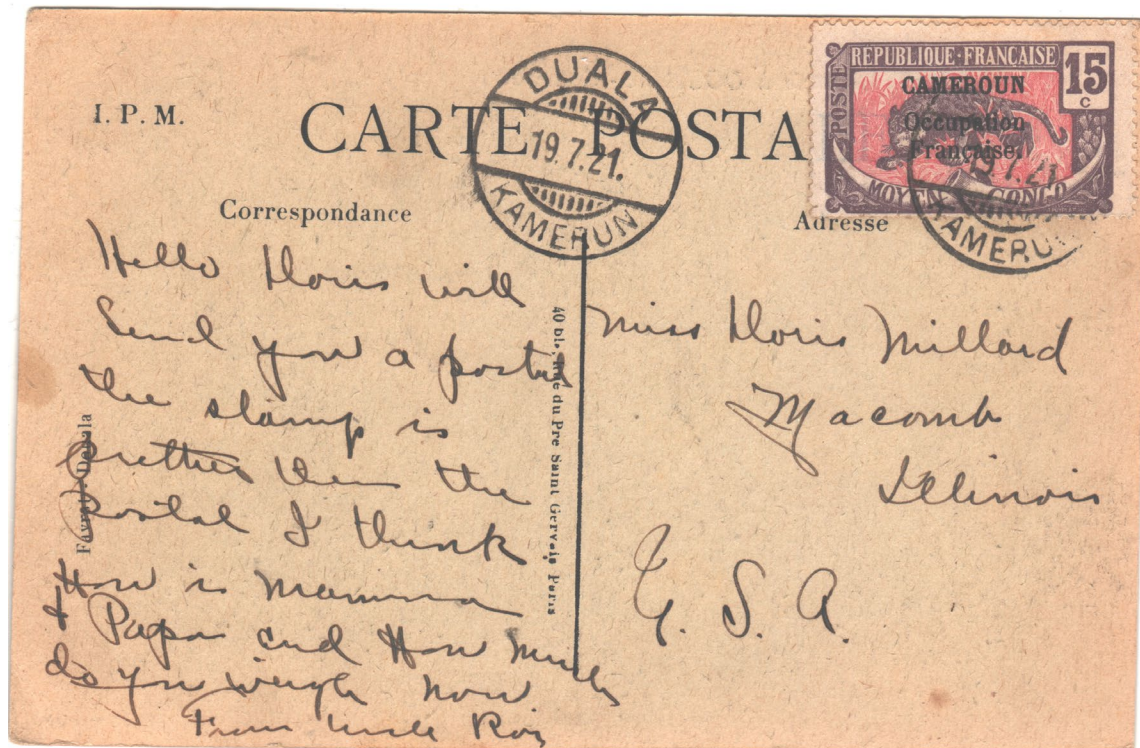 I. P. M.
CARTE POSTA
DUALA
19.7.21.
KAMERUN
POSTE
RÉPUBLIQUE·FRANÇAISE
15
c
CAMEROUN
Occupation
Française.
MOYEN CONGO
19.7.21
KAMERUN
Correspondance
Adresse
Hello Doris will
Send you a postal
the stamp is
Prettier then the
Postal I think
How is mamma
+ Papa and How much
do you weigh now
From Uncle Roy
40 bis, Rue du Pre Saint Gervais Paris
Miss Doris Millard
Macomb
Illinois
U. S. A.